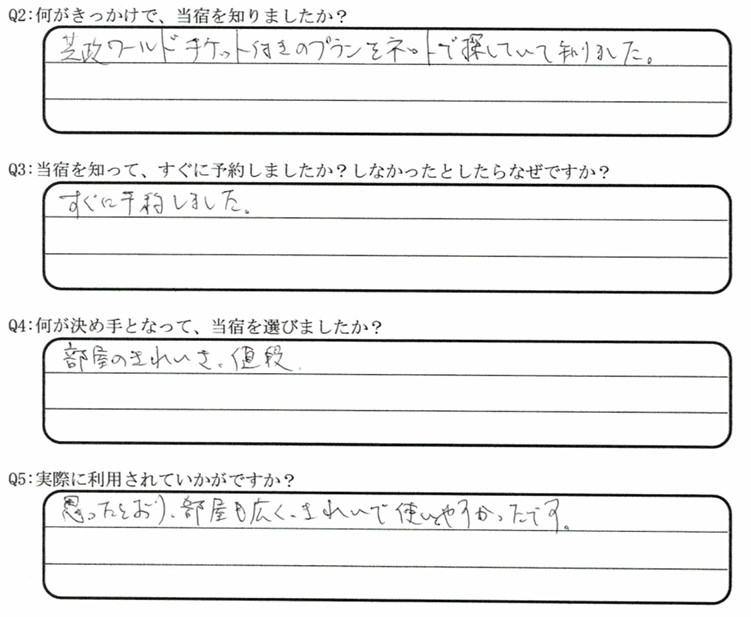 Q2:何がきっかけで、当宿を知りましたか？
芝政ワールドチケット付きのプランをネットで探していて知りました。
Q3:当宿を知って、すぐに予約しましたか？しなかったとしたらなぜですか？
すぐに予約しました。
Q4:何が決め手となって、当宿を選びましたか？
部屋のきれいさ、値段
Q5:実際に利用されていかがですか？
思ったとおり、部屋も広く、きれいで使いやすかったです。